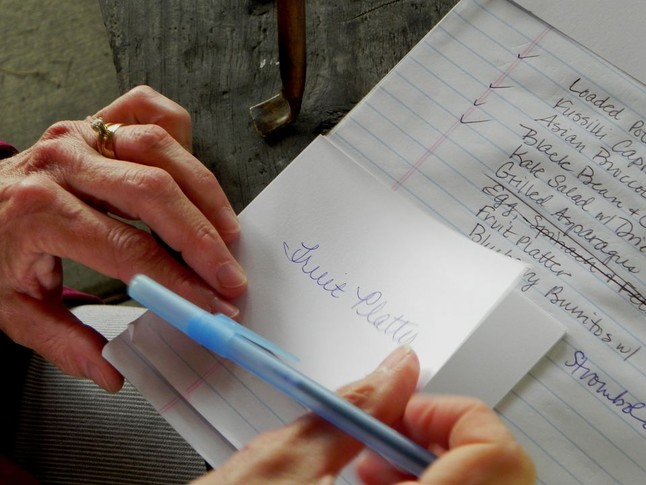 Fruit Platter
Loaded Pot
Fussilli Capr
Asian Brocco
Black Bean +
Kale Salad w/ Dri
Grilled Asparagus
Egg, Spinach + Fe
Fruit Platter
Burritos w/
Strombol